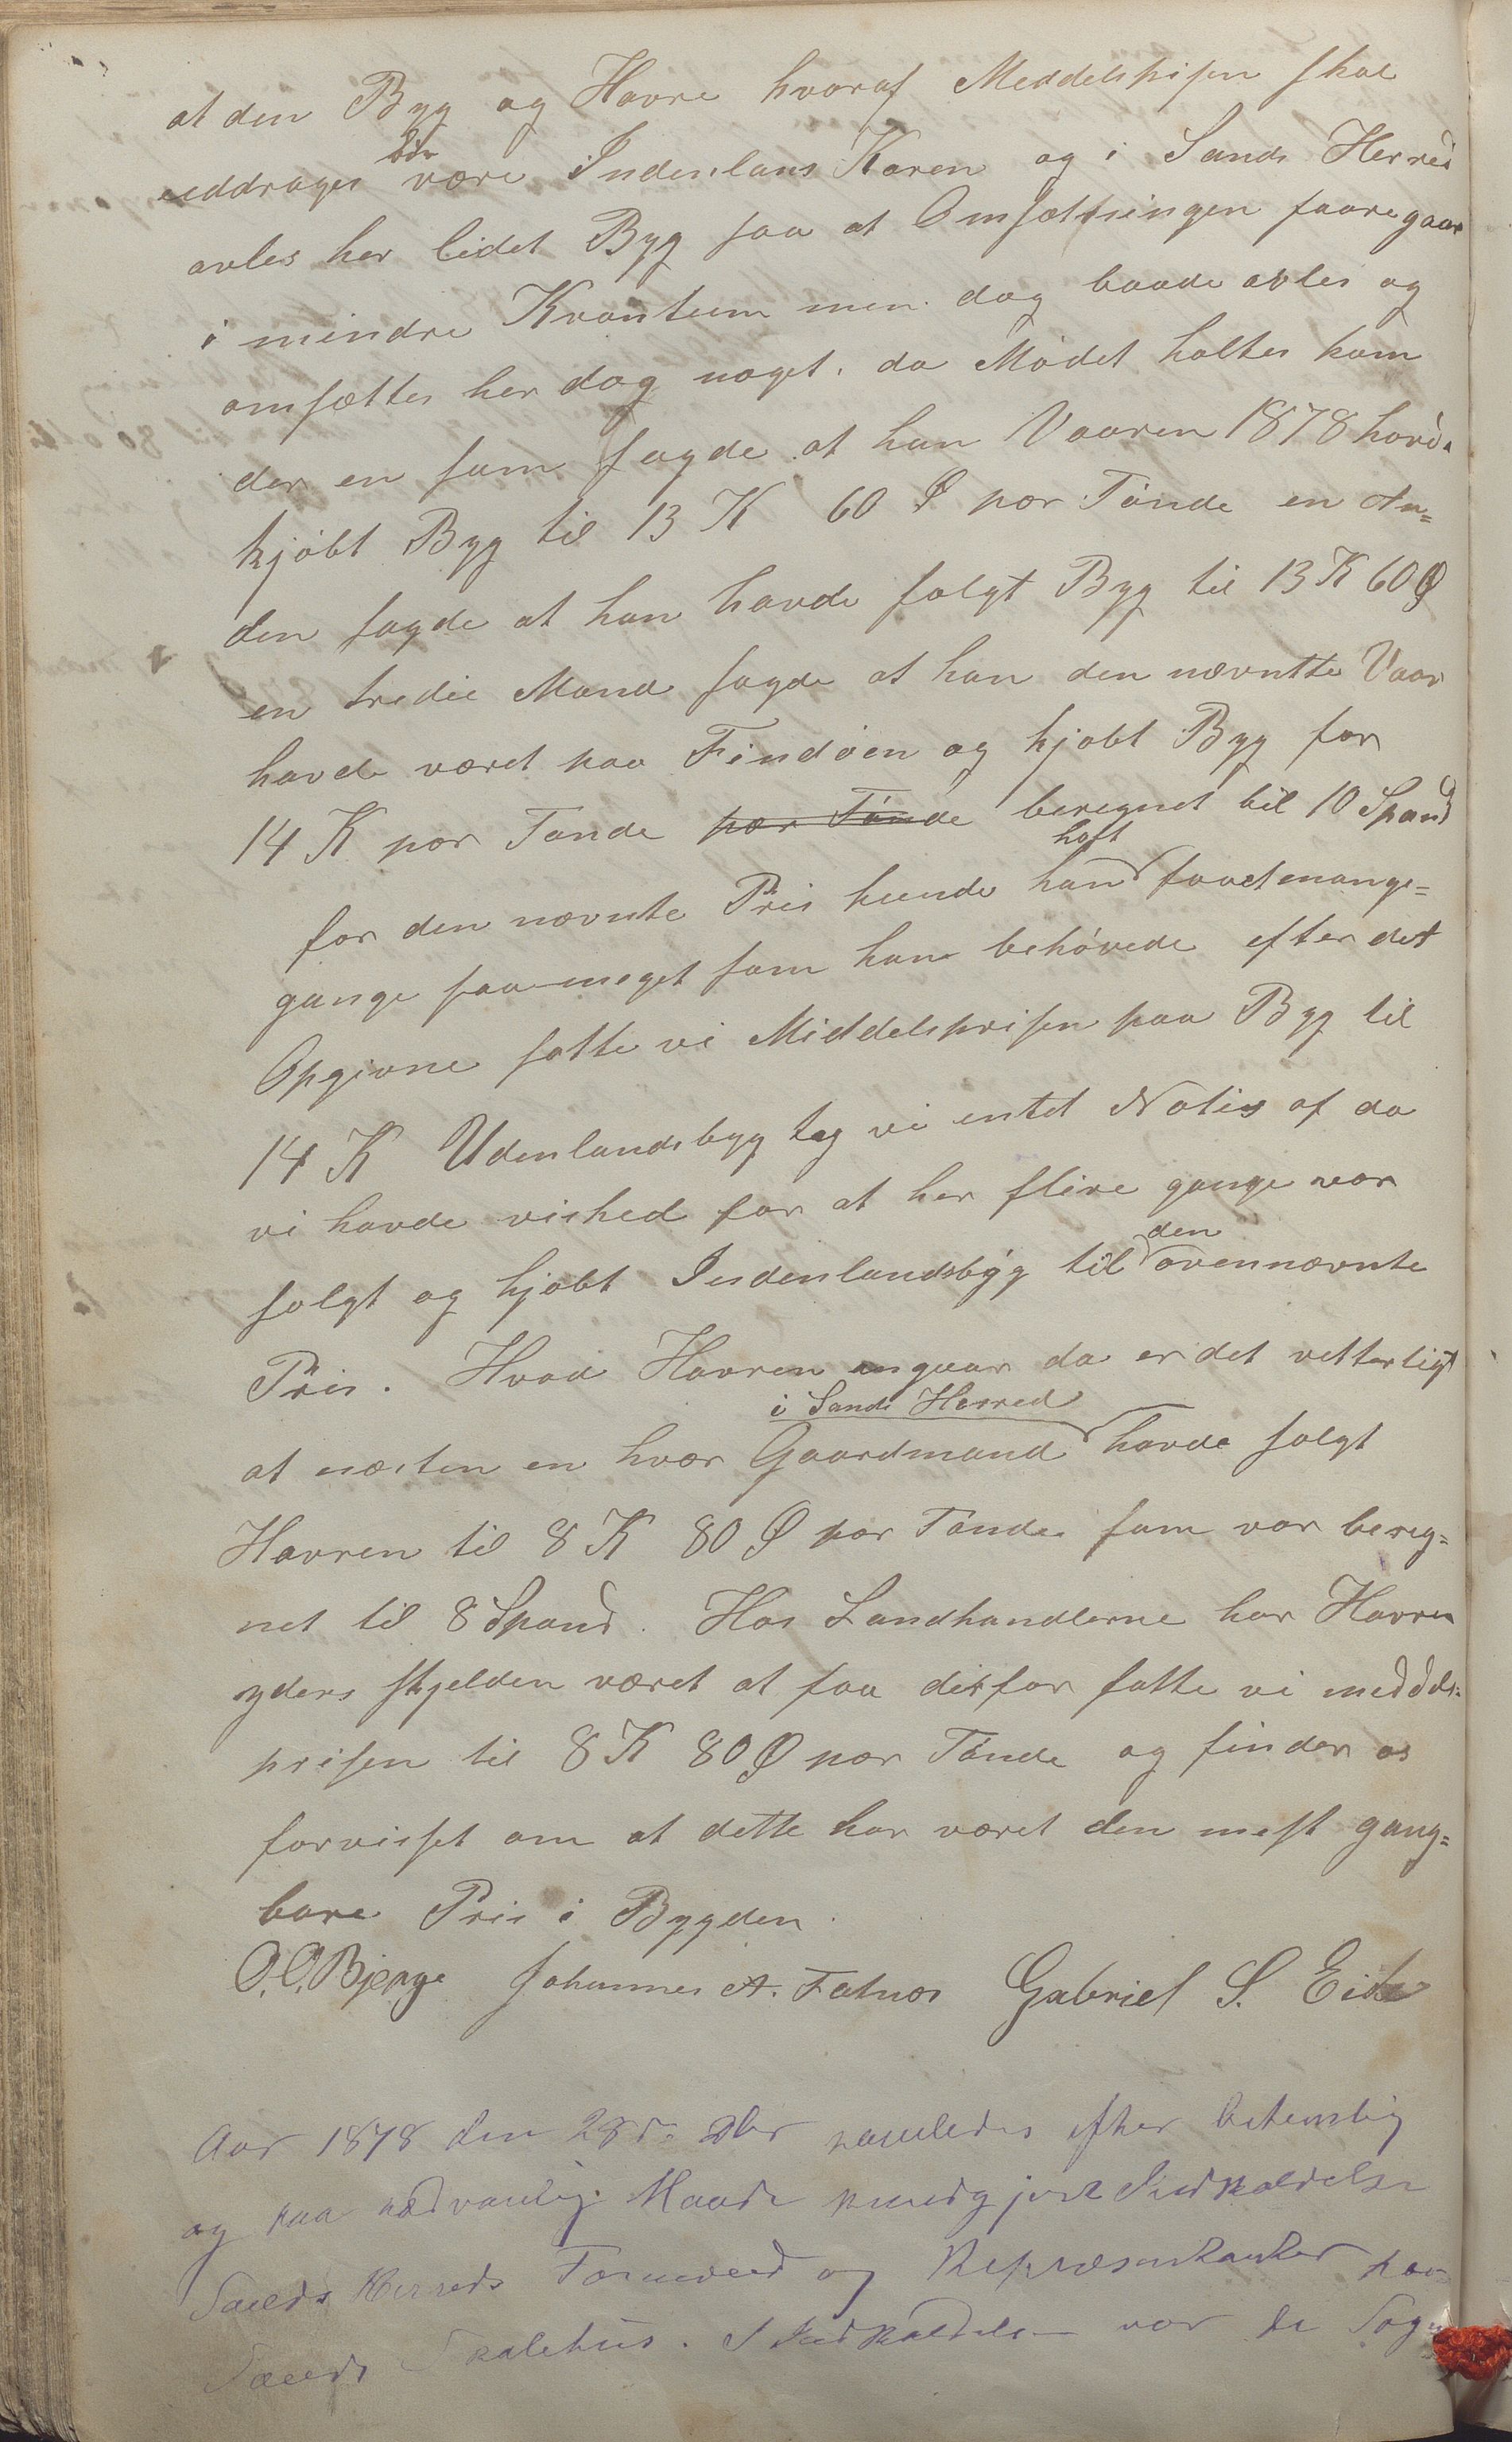 at den Byg og Havre hvoraf Meddelsprisen skal
uddrages bør være Indenlans Koren og i Sands Herred
avles her lidet Byg saa at Omsættningen faaregaar
i mindre Kvantum men dog baade avles og
omsættes her dog noget. da Mødet holtes kom
der en som sagde at han Vaaren 1878 havde
kjøbt Byg til 13 K 60 Ø per Tønde en An=
den sagde at han havde solgt Byg til 13 K 60 Ø
en tredie Mand sagde at han den nævntte Vaar
havde været paa Findøen og kjøbt Byg for
14 K per Tønde per Tønde beregnet til 10 Spand
for den nævnte Pris kunde han haft faaet mange=
gange saa meget som han behøvede efter det
Opgivne satte vi Middelsprisen paa Byg til
14 K Udenlandsbyg tog vi entet Notis af da
vi havde vished for at her flere gange var
solgt og kjøbt Indenlandsbyg til den ovennævnte
Pris. Hvad Havren angaar da er det vetterligt
at næsten en hver Gaardmand i Sands Herred havde solgt
Havren til 8 K 80 Ø per Tønde som var bereg=
net til 8 Spand. Hos Landhandlerne har Havren
yders skjelden været at faa derfor satte vi meddels=
prisen til 8 K 80 Ø per Tønde og finder os
forvisset om at dette har været den mest gang=
bare Pris i Bygden.
O.O. Bjerge Johannes A. Fatnes Gabriel S. Eide
Aar 1878 den 28de samledes efter betimelig
og paa sædvanlig Maade kundgjort Indkaldelse
Sands Herreds Formænd og Repræsentanter paa
Sands Skolehus. I Indkaldelsen var de Sogne